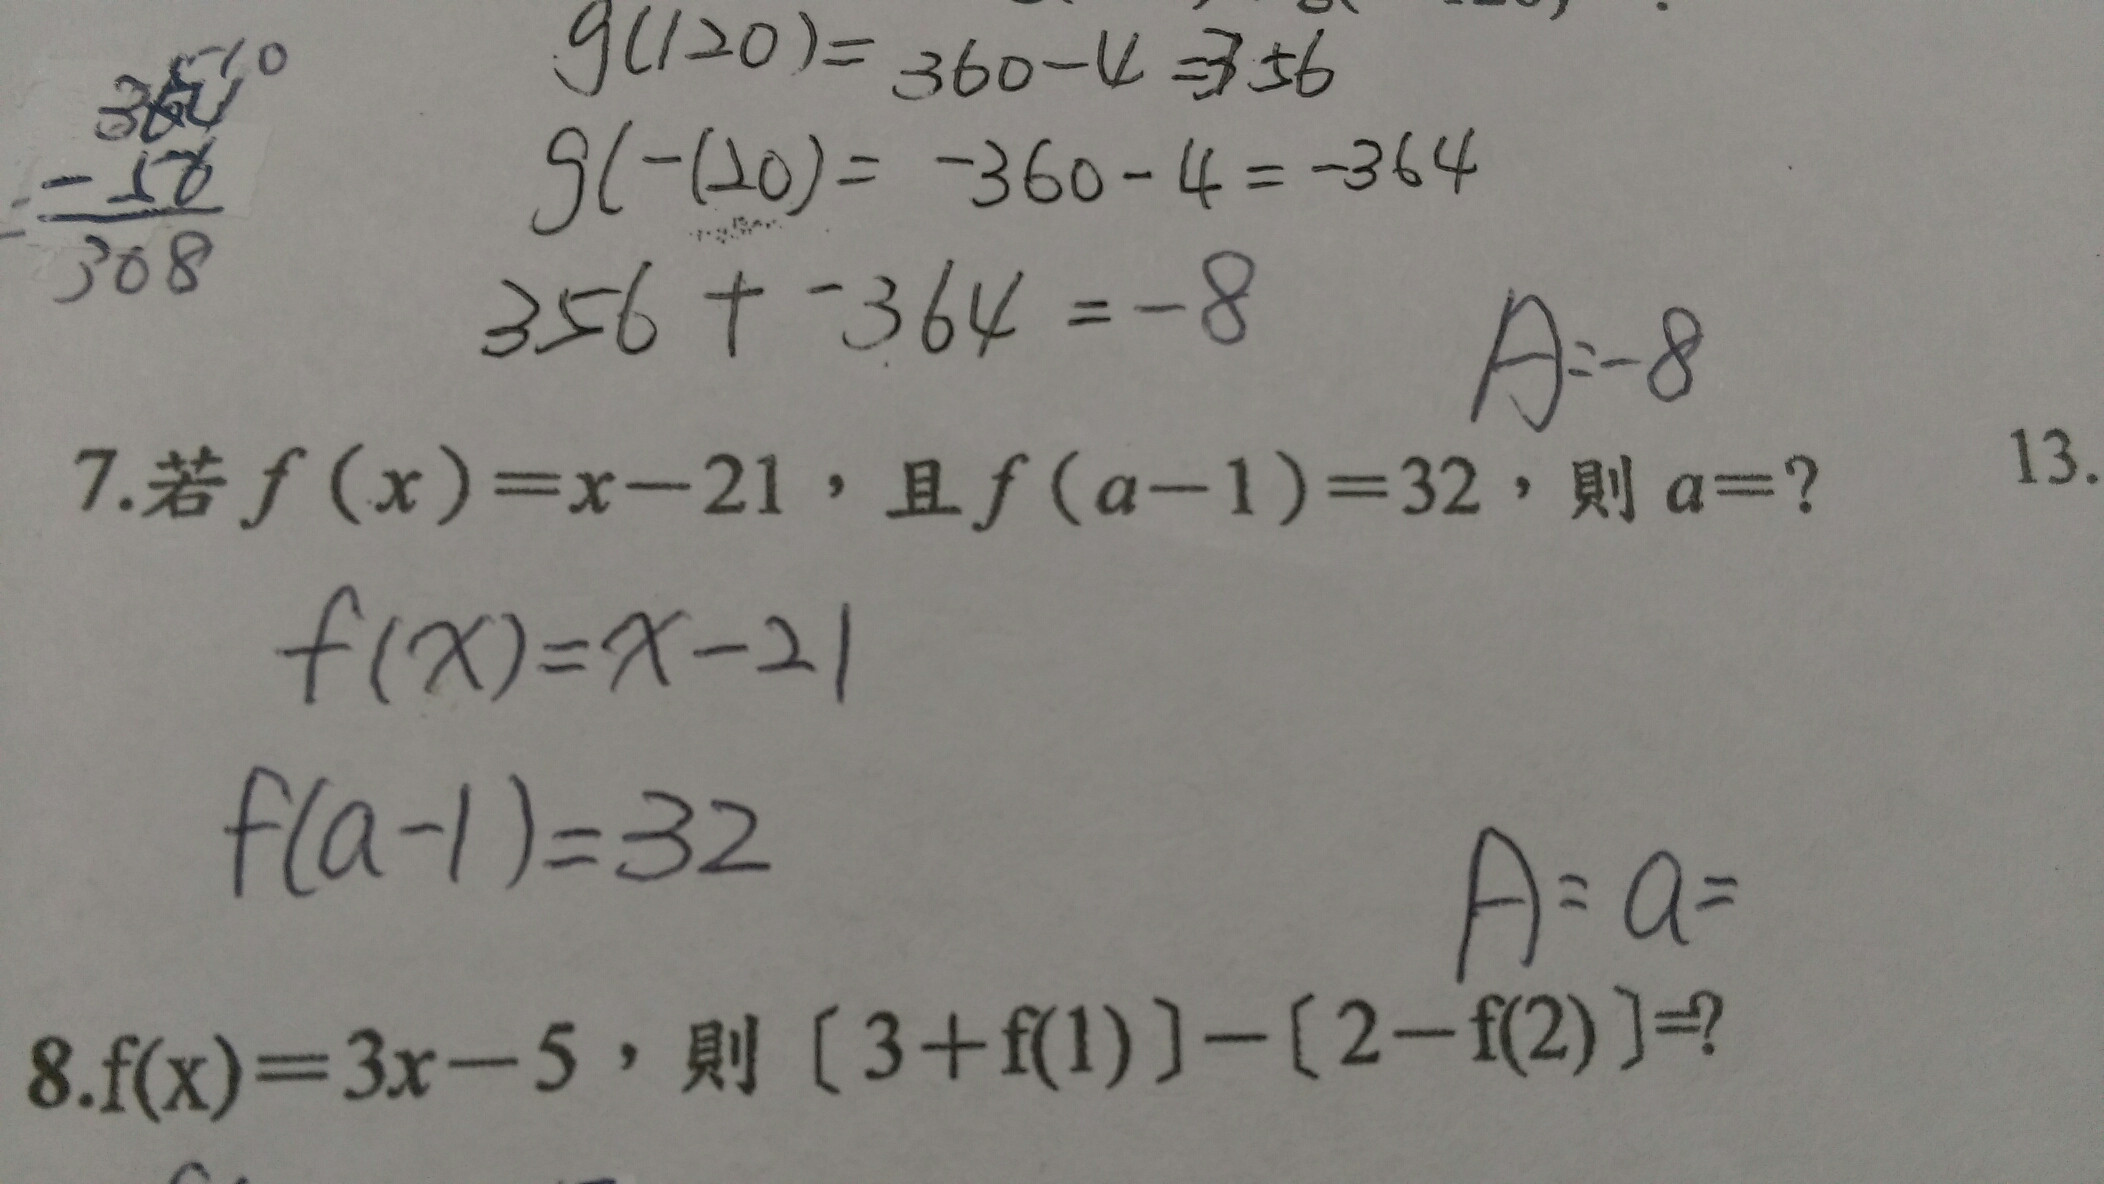 g(120)=360-4=356
g(-120)=-360-4=-364
- 56
308
356+-364=-8
A=-8
7.若f(x)=x-21,且f(a-1)=32,則a=?
13.
f(x)=x-21
f(a-1)=32
A=a=
8.f(x)=3x-5,則〔3+f(1)〕-〔2-f(2)〕=?